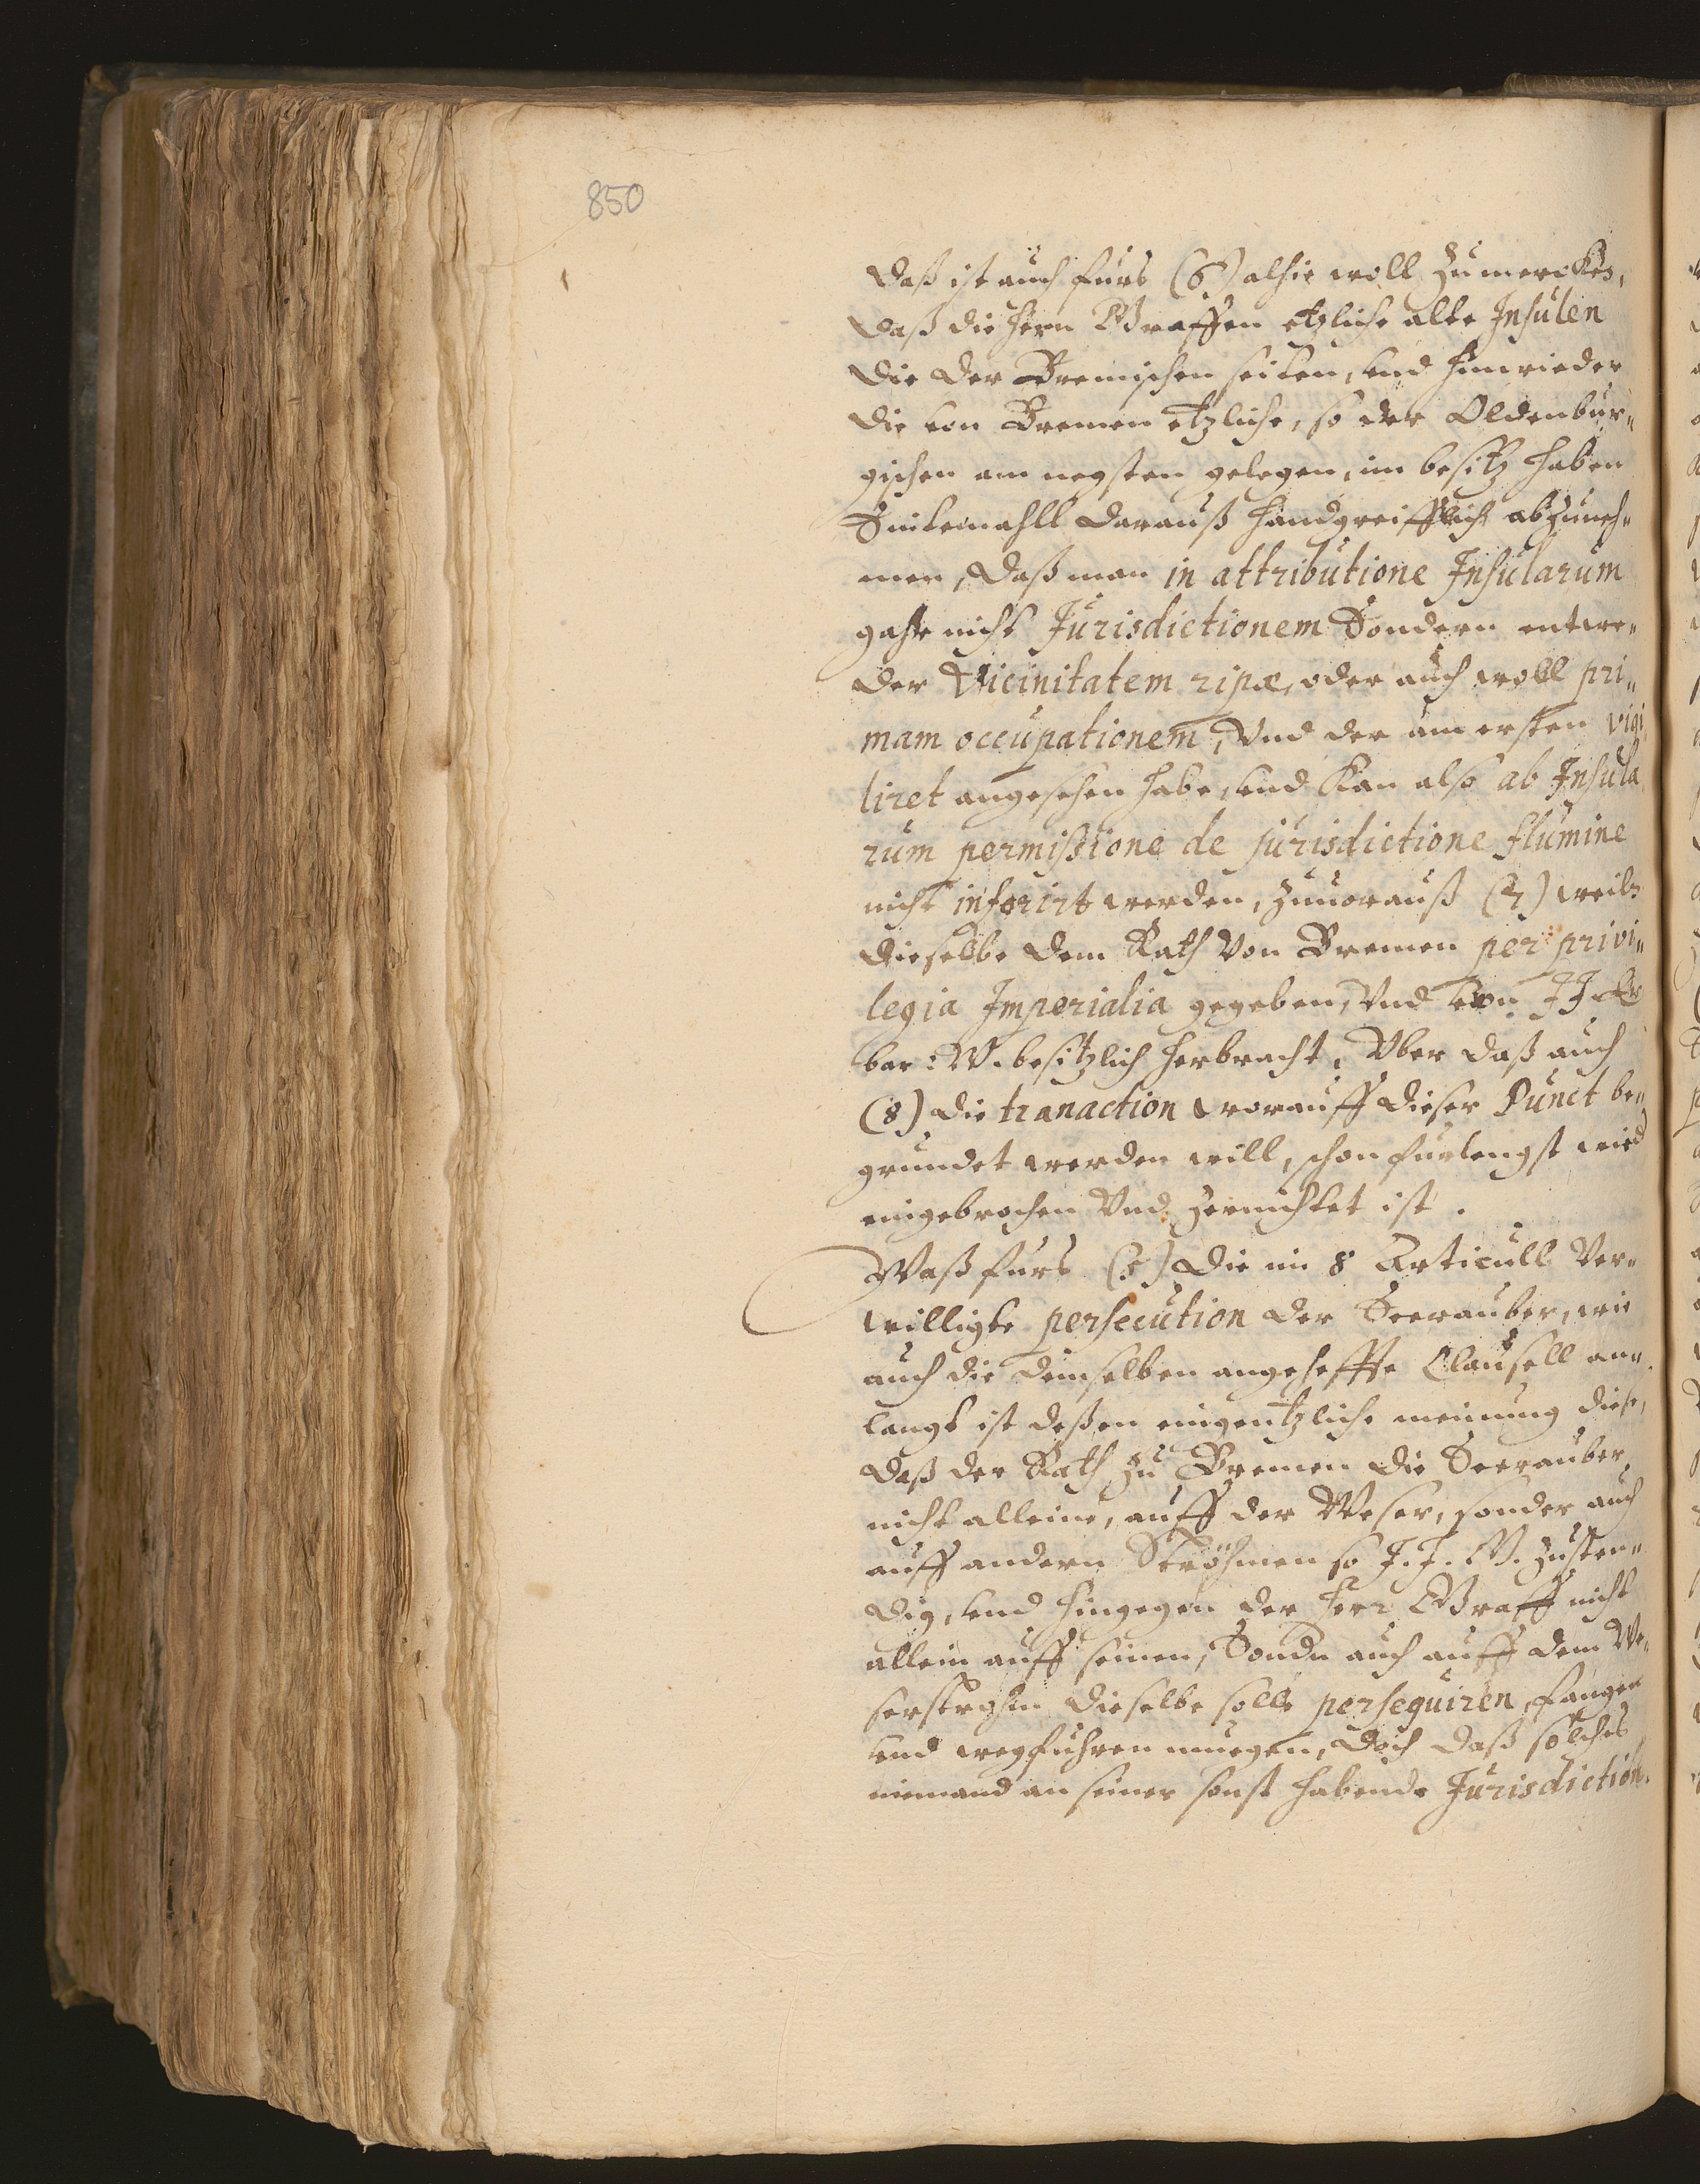 850
Daß ist auch furs (6) alhie woll zumercken,
Daß die Hern Graffen etzliche alte Insulen
Die der Bremischen seiten, und hinwieder
die von Bremen etzliche, so der Oldenbur„
gischen am negsten gelegen, im besitz haben
Sintemahll darauß handgreifflich abzuneh„
men, Daß man in attributione Insularum
gahr nicht Jurisdictionem Sondern entwe„
der Vicinitatem ripæ, oder auch woll pri„
mam occupationem, Vnd der am ersten vigi
liret angesehen habe, und kan also ab Insula
rum permissione de jurisdictione flumine
nicht inferirt werden, zuuorauß (7) weiln
dieselbe dem Rath von Bremen per privi„
legia Imperialia gegeben, Vnd von
bar: W. besitzlich herbracht, Vber daß auch
(8) die tranaction worauff dieser Punct be„
grundet werden will, schon furlengst wied
eingebrochen Vnd zernichtet ist.
Waß furs die im 8 Articull Ver„
willigte persecution der Seerauber, wie
auch die demselben angeheffte Clausell an„
langt ist deßen eingentzliche meinung diese,
Daß der Rath zu Bremen die Seerauber,
nicht alleine, auff der Weser, sonder auch
auff andern Ströhmen so J. J. G. zusten„
dig, und hingegen der Herr Graff nicht
allein auff seinen, Sondn auch auff dem We„
serstrohm dieselbe solle persequiren, fangen
und wegfuhren muegen, Doch daß solches
niemand an seiner sonst habende Jurisdiction.